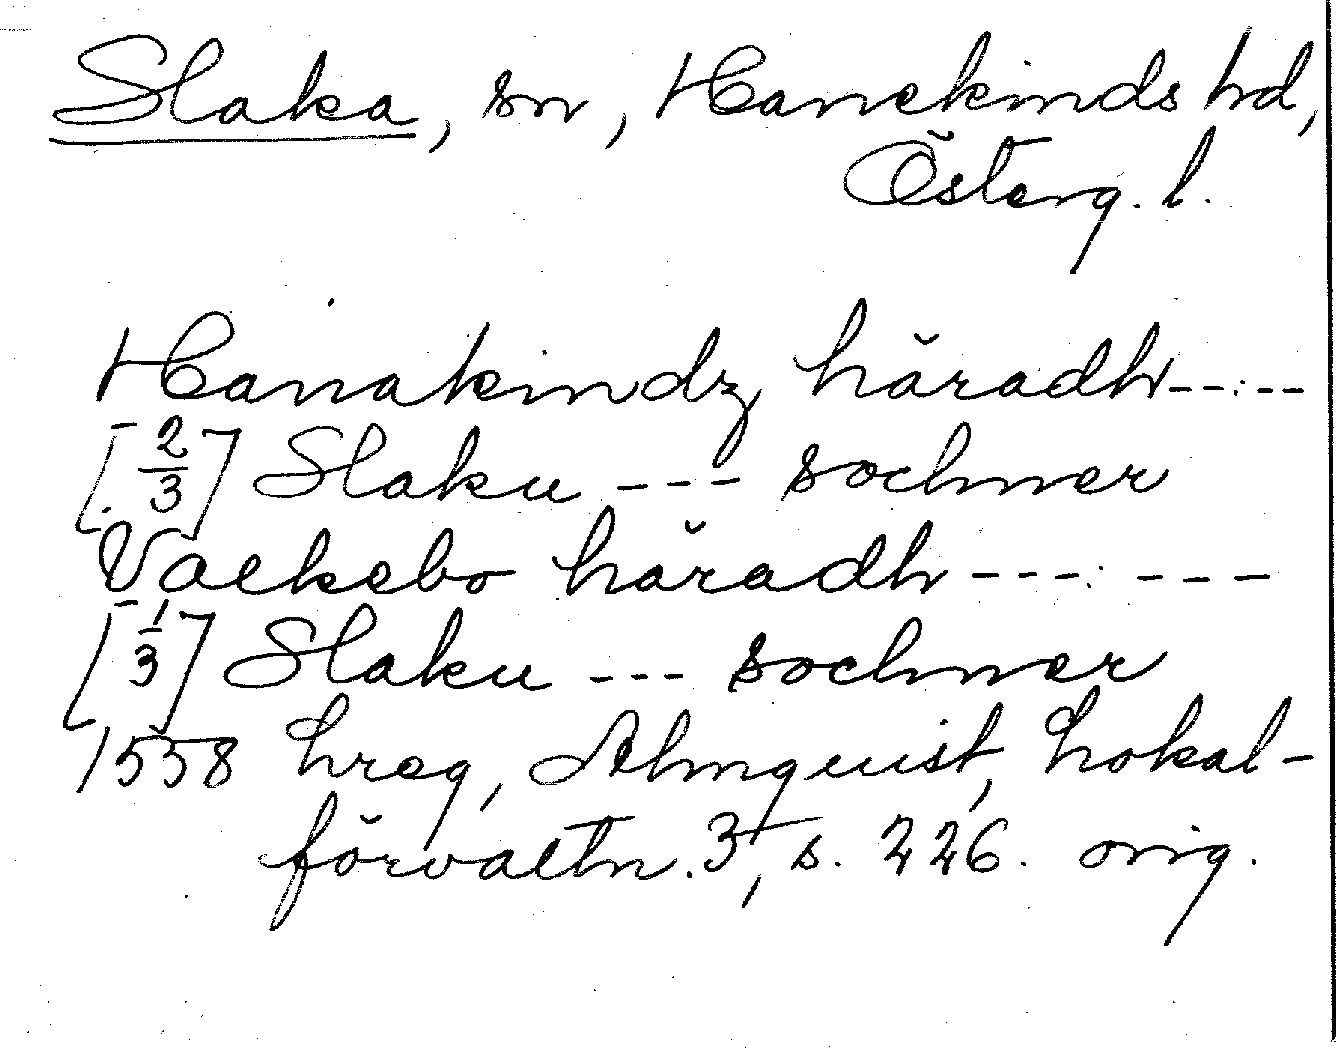 Slaka, sn, Hanekinds hd,
Österg. l.
Hanakindz häradh - - - -
[2/3] Slaku - - - sochner
Valkebo häradh - - - - - - -
[1/3] Slaku - - - sochner
1558 hreg, Almquist, Lokal-
förvaltn. 3, s. 226. orig.